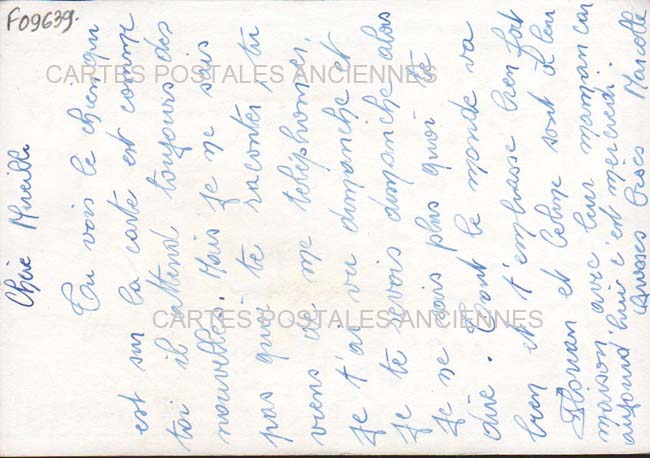 F09639.
CARTES POSTALES ANCIENNES
CARTES POSTALES ANCIENNES
Chère Mireille
Tu vois le chien qui
est sur la carte est comme
toi il attend toujours des
nouvelles. Mais je ne sais
pas quoi te raconter, tu
viens de me téléphoner,
Je t'ai vu dimanche et
Je te revois dimanche alors
Je ne sais plus quoi te
dire. Tout le monde va
bien et t'embrasse bien fort
Florian et Celine sont à leur
maison avec leur maman car
aujourd'hui c'est mercredi.
Grosses bises Marcelle